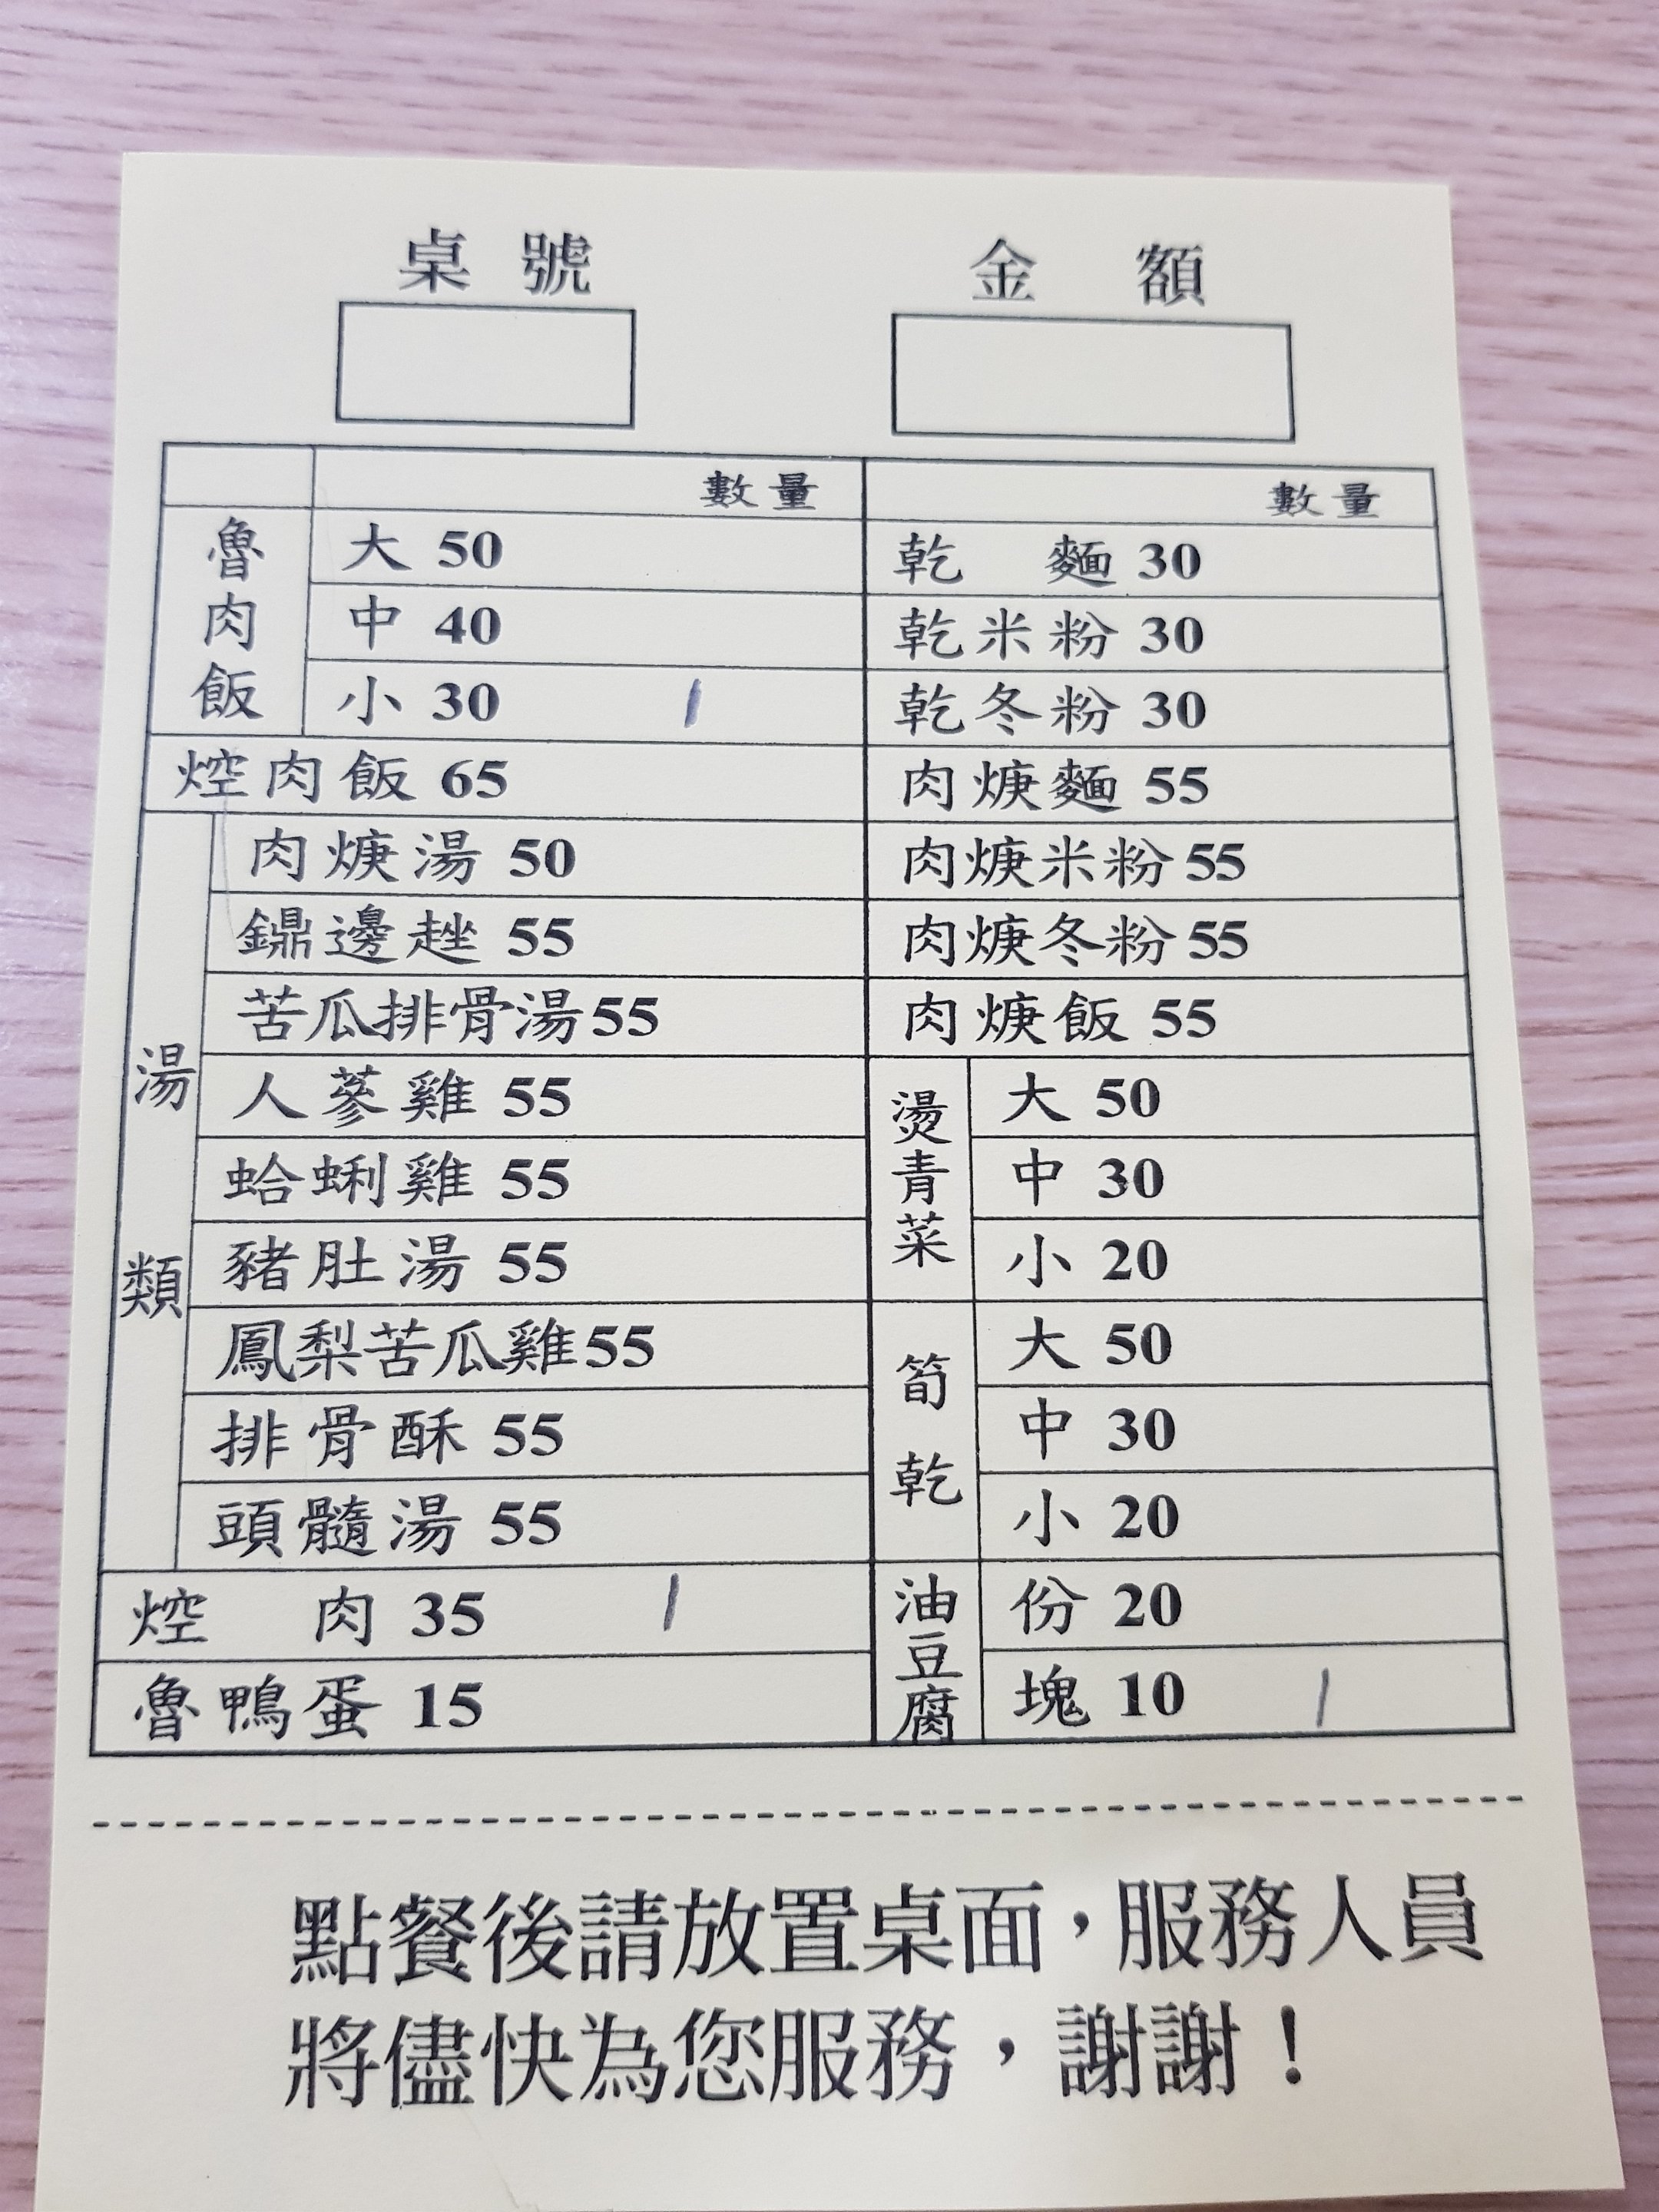 桌號
金額
數量
魯肉飯
大 50
中 40
小 30 1
焢肉飯 65
湯類
肉焿湯 50
鼎邊趖 55
苦瓜排骨湯 55
人蔘雞 55
蛤蜊雞 55
豬肚湯 55
鳳梨苦瓜雞 55
排骨酥 55
頭髓湯 55
焢肉 35 1
魯鴨蛋 15
數量
乾麵 30
乾米粉 30
乾冬粉 30
肉焿麵 55
肉焿米粉 55
肉焿冬粉 55
肉焿飯 55
燙青菜
大 50
中 30
小 20
筍乾
大 50
中 30
小 20
油豆腐
份 20
塊 10 1
點餐後請放置桌面，服務人員
將儘快為您服務，謝謝！